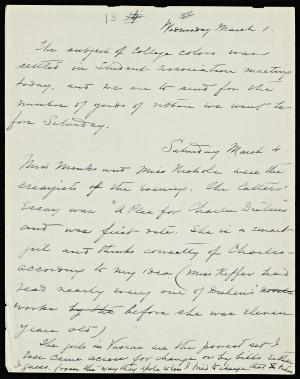 13
Wednesday March 1.
The subject of College colors was
settled in Student Association meeting
today, and we are to send for the
number of yards of ribbon we want be-
fore Saturday.
Saturday March 4.
Miss Monks and Miss Nichols were the
essayists of the evening. The latters'
Essay was "A Plea for Charles Dickens"
and was first rate. She is a smart
girl and thinks correctly of Charles -
according to my idea (Miss Keffer had
read nearly every one of Dickens' novels
works by the before she was eleven
years old)
The girls in Vassar are the poorest set I
ever came across for change or by bills either
I guess, from the way they spoke when I tried to change that